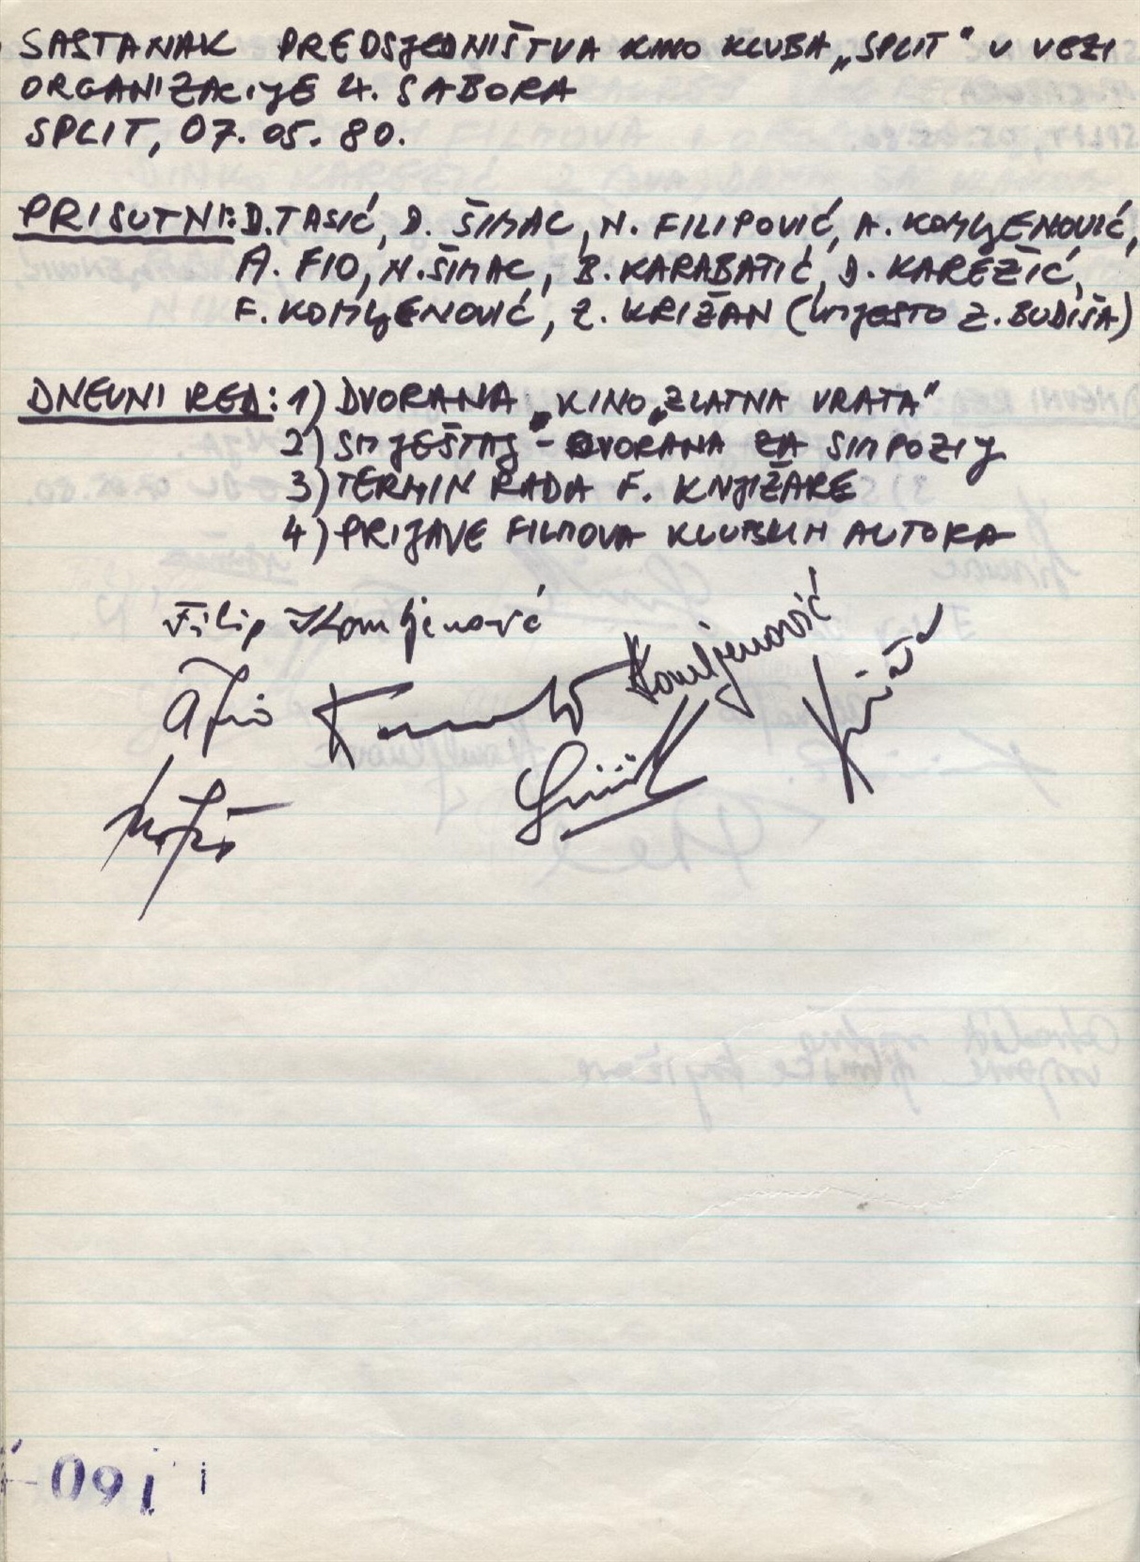 SASTANAK PREDSJEDNIŠTVA KINO KLUBA „SPLIT“ U VEZI
ORGANIZACIJE 4. SABORA
SPLIT, 07. 05. 80.
PRISUTNI: D. TASIĆ, D. ŠIMAC, N. FILIPOVIĆ, A. KOMLJENOVIĆ,
A. FIO, N. ŠIMAC, B. KARABATIĆ, D. KAREŽIĆ,
F. KOMLJENOVIĆ, Z. KRIŽAN (UMJESTO Z. BUDIŠA)
DNEVNI RED: 1) DVORANA „KINO „ZLATNA VRATA“
2) SMJEŠTAJ - DVORANA ZA SIMPOZIJ
3) TERMIN RADA F. KNJIŽARE
4) PRIJAVE FILMOVA KLUBSKIH AUTORA
Filip Komljenović
Komljenović
AFio
160-